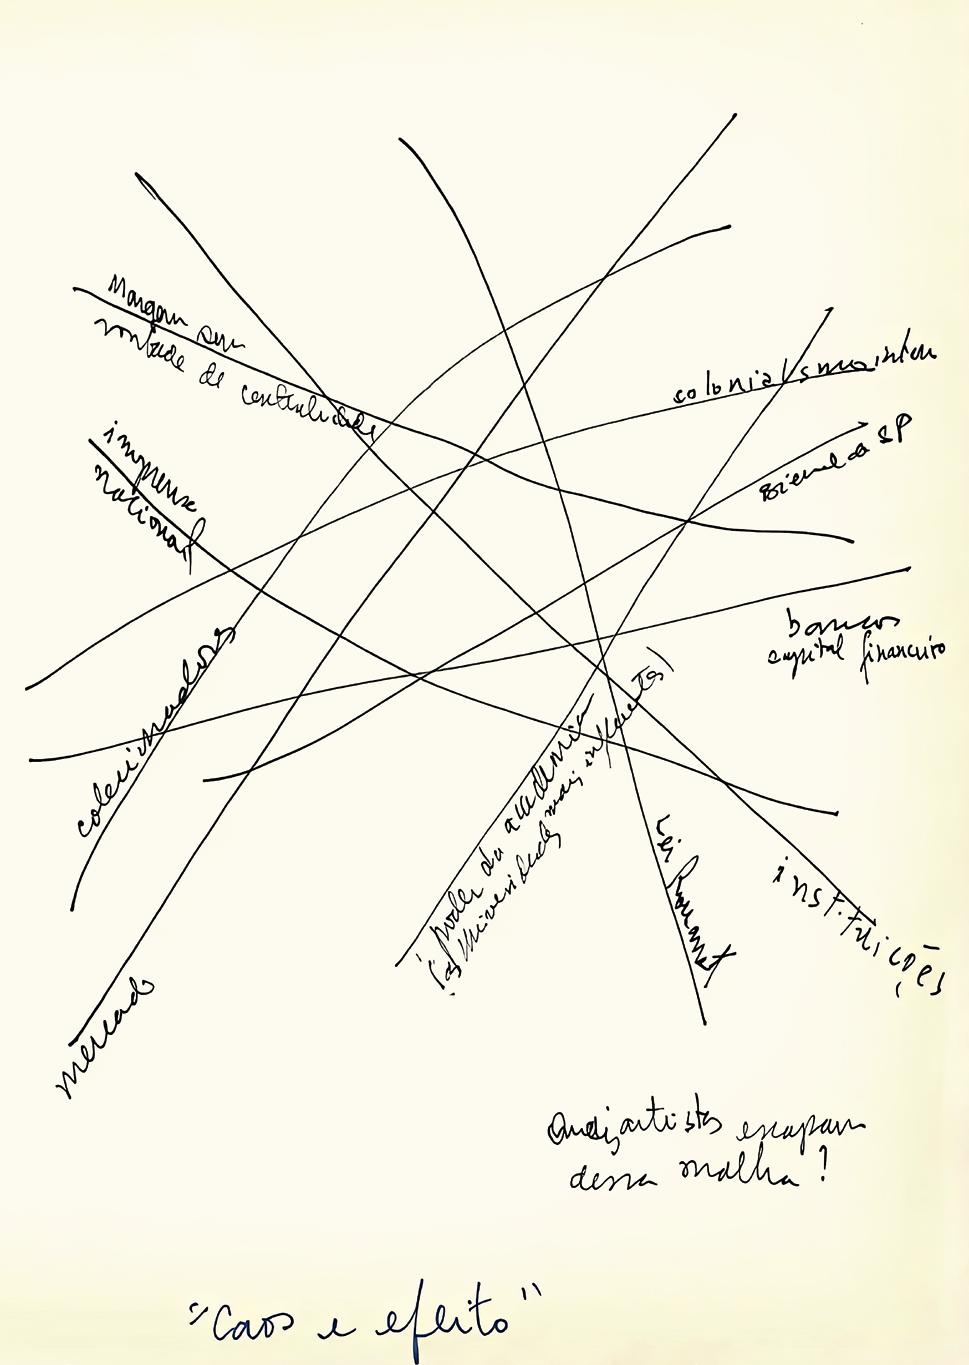 Margem sem
vontade de centralidade
colonialismo inter
Bienal de SP
imprensa
nacional
bancos
capital financeiro
colecionadores
poder da academia
(as universidades mais influentes)
Lei Rouanet
instituições
mercado
Quais artistas escapam
dessa malha?
"Caos e efeito"